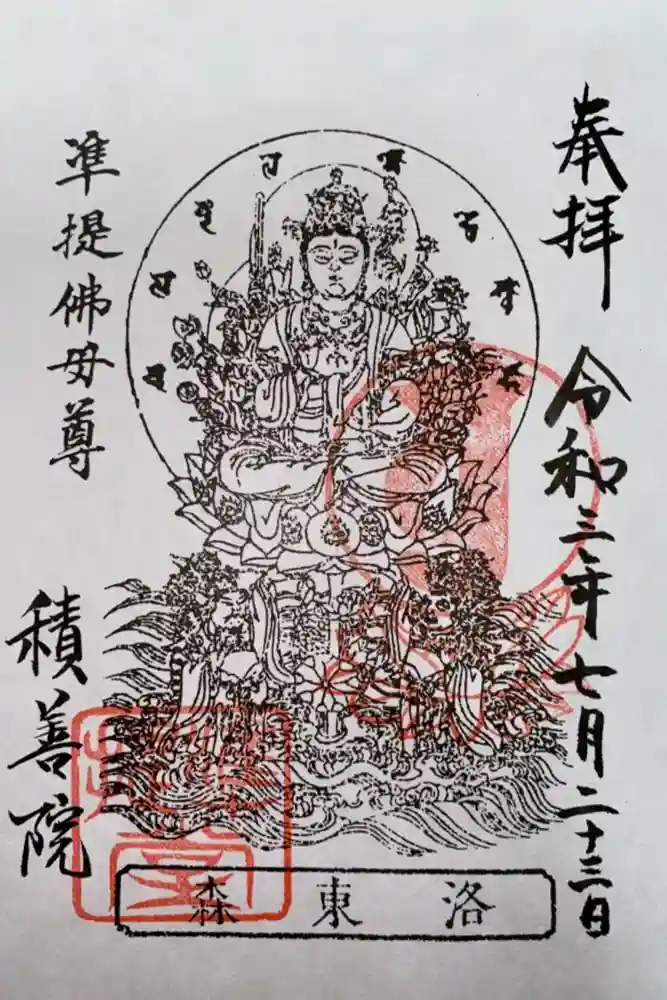 奉拝
令和三年七月二十三日
準提佛母尊
積善院
洛東森